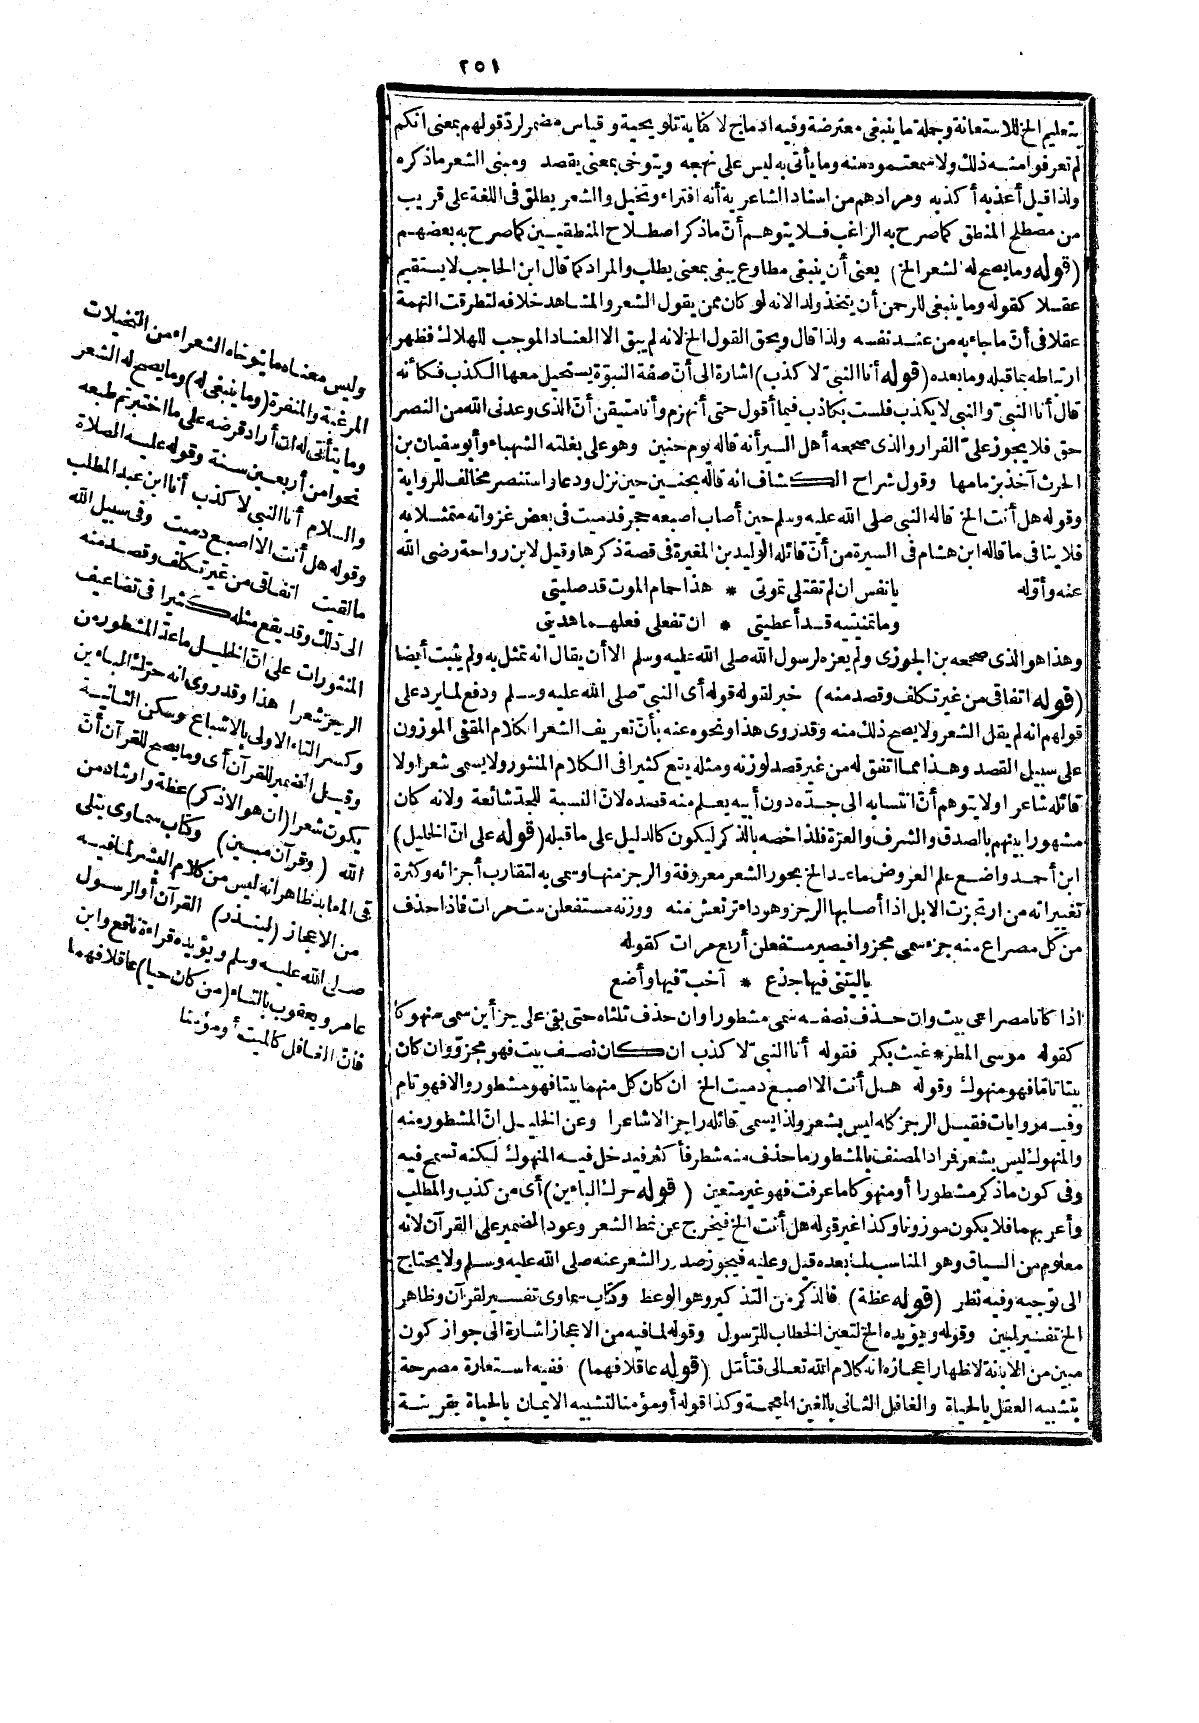 ٢٥١
بتعليم الخ للاستعانة وجملة ما ينبغى معترضة وفيه ادماج لا كناية تلويحية وقياس مضمر لرد قولهم بمعنى انكم
لم تعرفوا منه ذلك ولا سمعتموه منه وما يأتى به ليس على نهجه ويتوخى بمعنى يقصد ومبنى الشعر ما ذكره
ولذا قيل أعذبه أكذبه ومرادهم من اسناد الشاعرية أنه افتراء وتخيل والشعر يطلق فى اللغة على قريب
من مصطلح المنطق كما صرح به الراغب فلا يتوهم أنّ ما ذكر اصطلاح المنطقيين كما صرح به بعضهم
(قوله وما يصح له الشعر الخ) يعنى أن ينبغى مطاوع يبغى بمعنى يطلب والمراد كما قال ابن الحاجب لا يستقيم
عقلا كقوله وما ينبغى للرحمن أن يتخذ ولدا لانه لو كان ممن يقول الشعر والمشاهد خلافه لتطرقت التهمة
عقلا فى أنّ ما جاء به من عند نفسه ولذا قال ويحق القول الخ لانه لم يبق الا العناد الموجب للهلاك فظهر
ارتباطه بما قبله وما بعده (قوله أنا النبىّ لا كذب) اشارة الى أنّ صفة النبوّة يستحيل معها الكذب فكأنه
قال أنا النبىّ والنبى لا يكذب فلست بكاذب فيما أقول حتى أنهزم وأنا متيقن أنّ الذى وعدنى الله من النصر
حق فلا يجوز علىّ الفرار والذى صححه أهل السير أنه قاله يوم حنين وهو على بغلته الشهباء وأبو سفيان بن
الحرث آخذ بزمامها وقول شراح الكشاف انه قاله بحنين حين نزل ودعا واستنصر مخالف للرواية
وقوله هل أنت الخ قاله النبى صلى الله عليه وسلم حين أصاب اصبعه حجر فدميت فى بعض غزواته متمثلا به
فلا ينافى ما قاله ابن هشام فى السيرة من أنّ قائله الوليد بن المغيرة فى قصة ذكرها وقيل لابن رواحة رضى الله
عنه وأوّله يا نفس ان لم تقتلى تموتى * هذا حمام الموت قد صليتى
وما تمنيتيه قد أعطيتى * ان تفعلى فعلهما هديتى
وهذا هو الذى صححه بن الجوزى ولم يعزه لرسول الله صلى الله عليه وسلم الا أن يقال انه تمثل به ولم يثبت أيضا
(قوله اتفاقى من غير تكلف وقصد منه) خبر لقوله قوله أى النبىّ صلى الله عليه وسلم ودفع لما يرد على
قولهم انه لم يقل الشعر ولا يصح ذلك منه وقد روى هذا ونحوه عنه بأنّ تعريف الشعر الكلام المقفى الموزون
على سبيل القصد وهذا مما اتفق له من غير قصد لوزنه ومثله يقع كثيرا فى الكلام المنثور ولا يسمى شعرا ولا
قائله شاعرا ولا يتوهم أنّ انتسابه الى جدّه دون أبيه يعلم منه قصده لانّ النسبة للجدّ شائعة ولانه كان
مشهورا بينهم بالصدق والشرف والعزة فلذا خصه بالذكر ليكون كالدليل على ما قبله (قوله على انّ الخليل)
ابن أحمد واضع علم العروض ما عدا الخ بحور الشعر معروفة والرجز منها وسمى به لتقارب أجزائه وكثرة
تغييراته من ارتجزت الابل اذا أصابها الرجز وهو داء ترتعش منه ووزنه مستفعلن ست مرات فاذا حذف
من كل مصراع منه جزء سمى مجزوا فيصير مستفعلن أربع مرات كقوله
يا ليتنى فيها جذع * أخبّ فيها وأضع
اذا كانا مصراعى بيت وان حذف نصفه سمى مشطورا وان حذف ثلثاه حتى بقى على جزأين سمى منهوكا
كقوله موسى المطر * غيث بكر فقوله أنا النبىّ لا كذب ان كان نصف بيت فهو مجزوّ وان كان
بيتا تامّا فهو منهوك وقوله هل أنت الا اصبع دميت الخ ان كان كل منهما بيتا فهو مشطور والا فهو تام
وفيه روايات فقيل الرجز كله ليس بشعر ولذا يسمى قائله راجزا لا شاعرا وعن الخليل انّ المشطور منه
والمنهوك ليس بشعر فمراد المصنف بالمشطور ما حذف منه شطر فأكثر فيدخل فيه المنهوك لكنه تسمح فيه
وفى كون ما ذكر مشطورا أو منهوكا ما عرفت فهو غير متعين (قوله حرك الباءين) أى من كذب والمطلب
وأعربهما فلا يكون موزونا وكذا غير قوله هل أنت الخ فيخرج عن نمط الشعر وعود الضمير على القرآن لانه
معلوم من السياق وهو المناسب لما بعده قيل وعليه فيجوز صدور الشعر عنه صلى الله عليه وسلم ولا يحتاج
الى توجيه وفيه نظر (قوله عظة) فالذكر من التذكير وهو الوعظ وكتاب سماوى تفسير لقرآن وظاهر
الخ تفسير لمبين وقوله ويؤيده الخ لتعين الخطاب للرّسول وقوله لما فيه من الاعجاز اشارة الى جواز كون
مبين من الابانة لاظهار اعجازه انه كلام الله تعالى فتأمّل (قوله عاقلا فهما) ففيه استعارة مصرحة
بتشبيه العقل بالحياة والغافل الثانى بالغين المعجمة وكذا قوله أو مؤمنا لتشبيه الايمان بالحياة بقرينة
وليس معناه ما يتوخاه الشعراء من التخيلات
المرغبة والمنفرة (وما ينبغى له) وما يصح له الشعر
وما يتأتى له ان أراد قرضه على ما اختبرتم طبعه
نحوا من أربعين سنة وقوله عليه الصلاة
والسلام أنا النبى لا كذب أنا ابن عبد المطلب
وقوله هل أنت الا اصبع دميت وفى سبيل الله
ما لقيت اتفاقى من غير تكلف وقصد منه
الى ذلك وقد يقع مثله كثيرا فى تضاعيف
المنثورات على انّ الخليل ما عدّ المشطور من
الرجز شعرا هذا وقد روى انه حرّك الباءين
وكسر التاء الاولى بالاشباع وسكن الثانية
وقيل الضمير للقرآن أى وما يصح للقرآن أن
يكون شعرا (ان هو الا ذكر) عظة وارشاد من
الله (وقرآن مبين) وكتاب سماوى يتلى
فى المعابد ظاهر انه ليس من كلام البشر لما فيه
من الاعجاز (لينذر) القرآن أو الرسول
صلى الله عليه وسلم ويؤيده قراءة نافع وابن
عامر ويعقوب بالتاء (من كان حيا) عاقلا فهما
فانّ الغافل كالميت أو مؤمنا